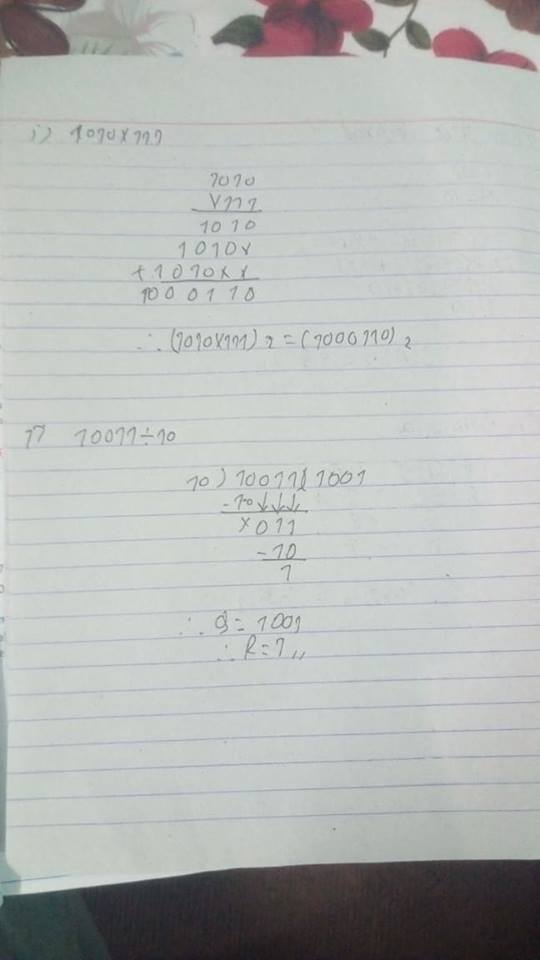 i) 1010×111
1010
×111
1010
1010×
+1010××
1000110
∴ (1010×111)₂ = (1000110)₂
10011÷10
10 ) 10011 ( 1001
-10↓↓↓
×011
-10
1
∴ Q = 1001
∴ R = 1,,